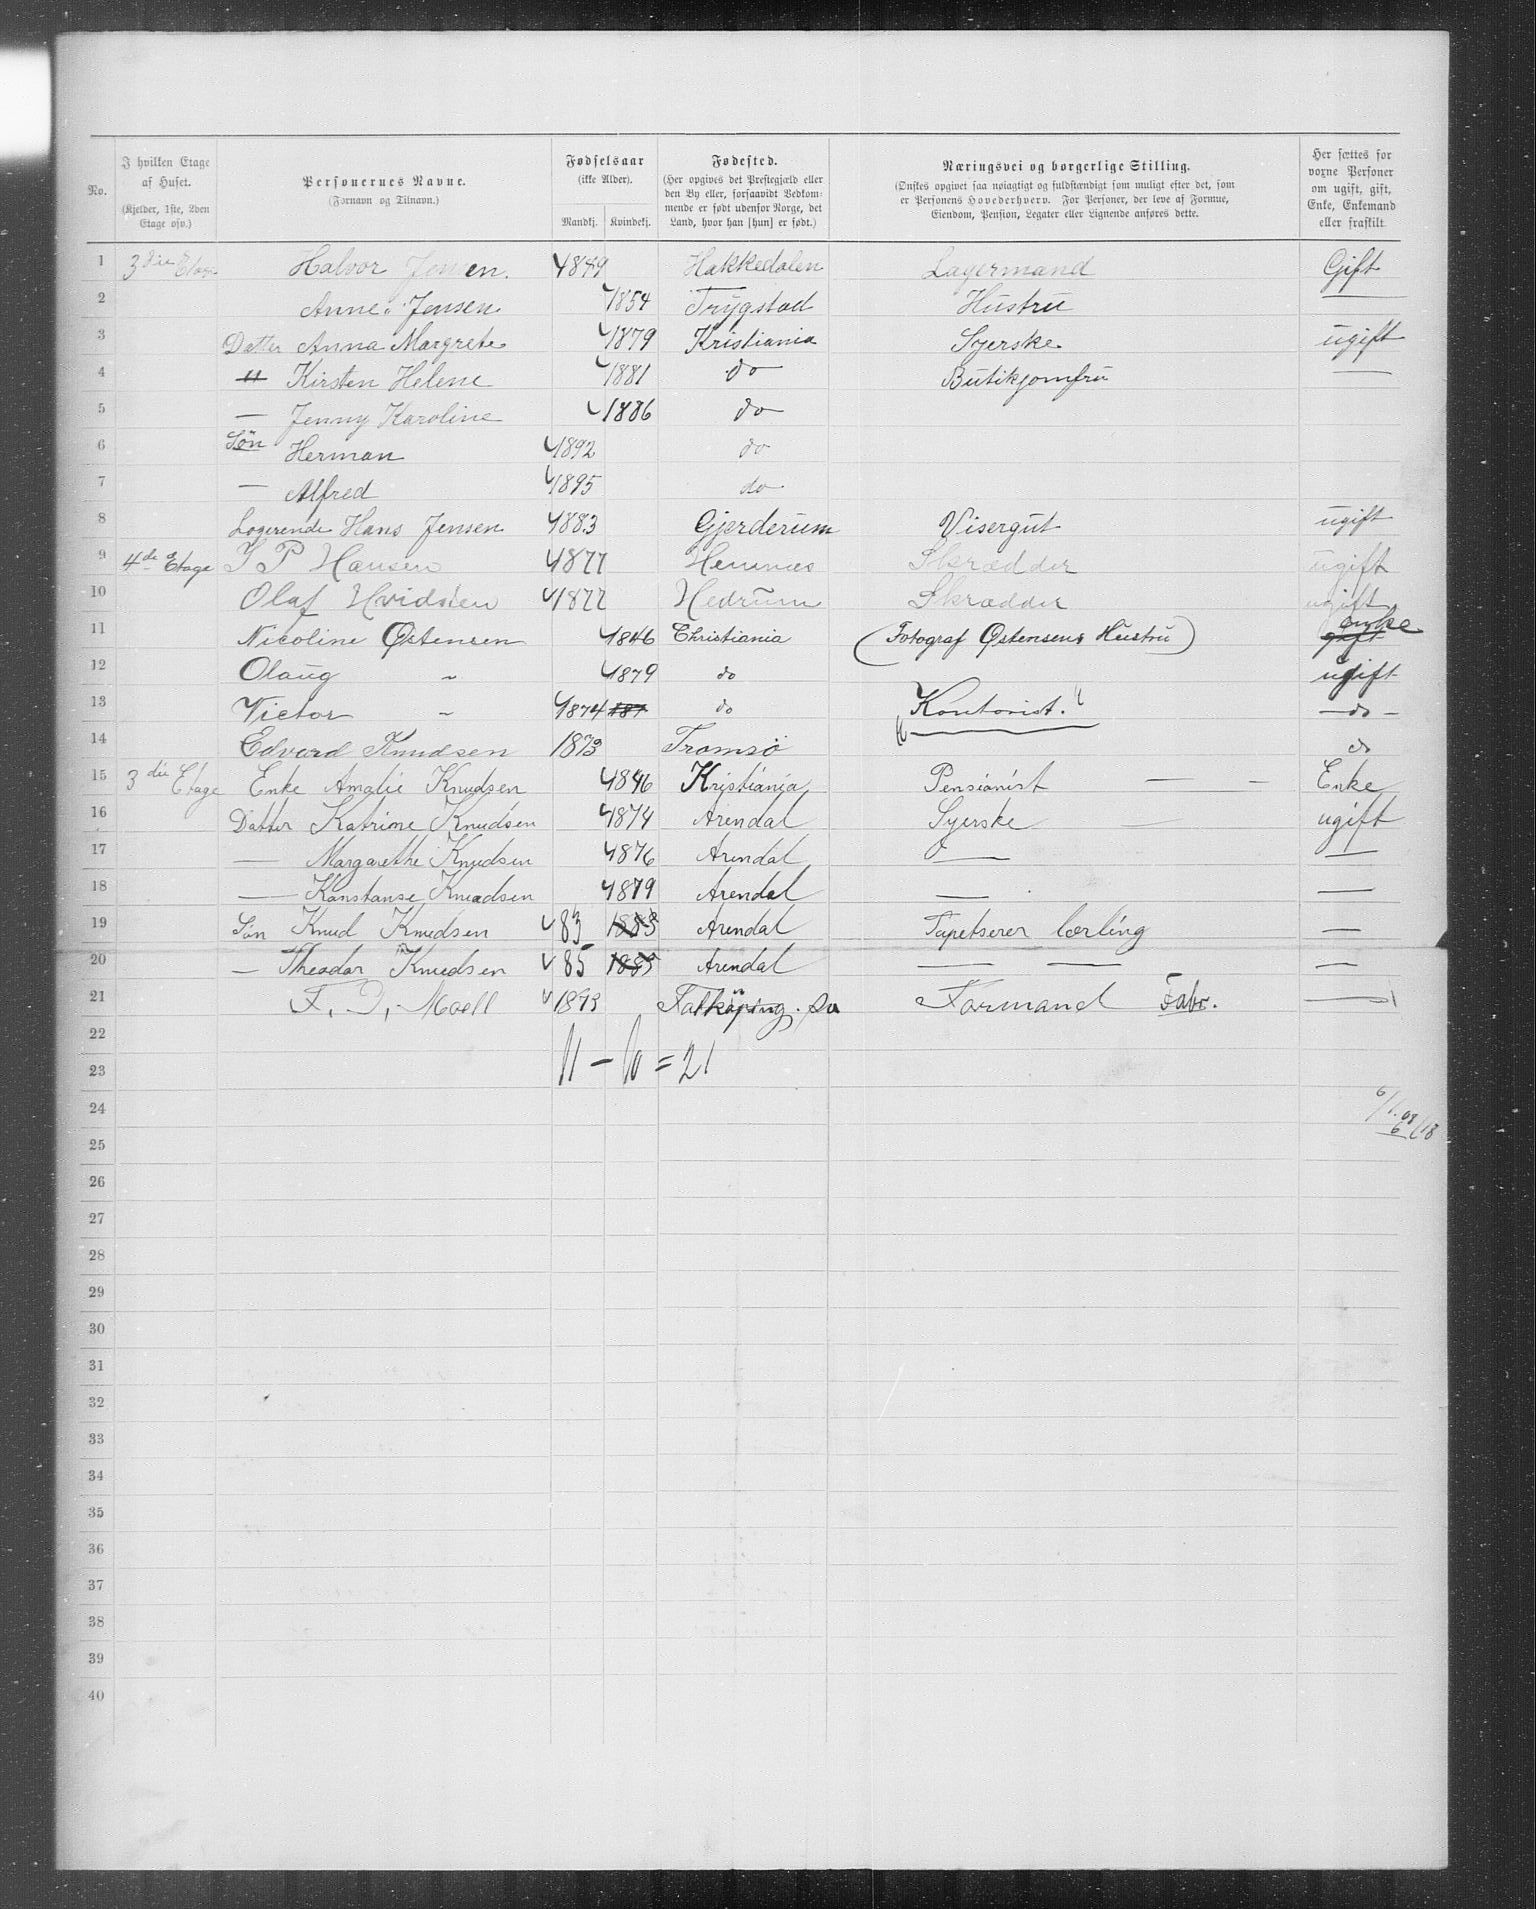 No.
I hvilken Etage af Huset.
(Kjelder, 1ste, 2den Etage osv.)
Personernes Navne.
(Fornavn og Tilnavn.)
Fødselsaar
(ikke Alder).
Mandkj. Kvindekj.
Fødested.
(Her opgives det Prestegjæld eller
den By eller, forsaavidt Vedkom-
mende er født udenfor Norge, det
Land, hvor han [hun] er født.)
Næringsvei og borgerlige Stilling.
(Ønskes opgivet saa nøiagtigt og fuldstændigt som muligt efter det, som
er Personens Hovederhverv. For Personer, der leve af Formue,
Eiendom, Pension, Legater eller Lignende anføres dette.
Her sættes for
voxne Personer
om ugift, gift,
Enke, Enkemand
eller fraskilt
1 3die Etage Halvor Jensen. 1849 Hakkedalen Lagermand Gift
2 Anne Jensen 1854 Trygstad Hustru —
3 Datter Anna Margrete 1879 Kristiania Syerske ugift
4 " Kirsten Helene 1881 do Butikjomfru —
5 — Jenny Karoline 1886 do
6 Søn Herman 1892 do
7 — Alfred 1895 do
8 Logerende Hans Jensen 1883 Gjerderum Visergut ugift
9 4de Etage J P Hansen 1877 Hemnæs Skrædder ugift
10 Olaf Hvidsten 1877 Hedrum Skrædder ugift
11 Nicoline Østensen 1846 Christiania (Fotograf Østensens Hustru) gift enke
12 Olaug " 1879 do ugift
13 Victor " 1874 187 do Kontorist. — do —
14 Edvard Knudsen 1873 Tromsö do
15 3die Etage Enke Amalie Knudsen 1846 Kristiania Pensionist — - Enke
16 Datter Katrine Knudsen 1874 Arendal Syerske — ugift
17 — Margarethe Knudsen 1876 Arendal — —
18 — Konstanse Knudsen 1879 Arendal — —
19 Søn Knud Knudsen 83 1883 Arendal Tapetserer lærling —
20 — Theodor Knudsen 85 1885 Arendal — — —
21 F. D. Moell 1873 Falköping. Formand Fabr. —
22
11 - 10 = 21
23
24
25
26
27
28
29
30
31
32
33
34
35
36
37
38
39
40